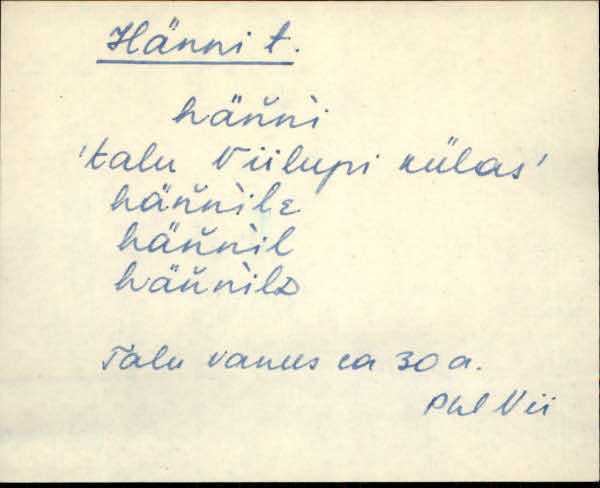 Hänni t.
häǹnì
'talu Viilupi külas'
häǹnìlᴇ
häǹnìl
häǹnìlᴅ
Talu vanus ca 30 a.
Phl Vii